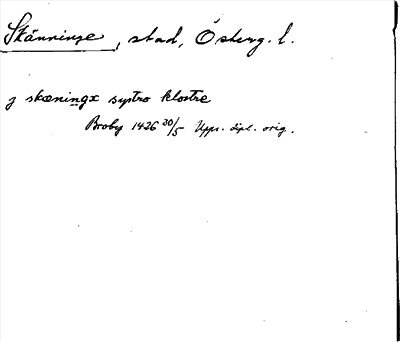 Skänninge, stad, Österg. l.
j skæningx systro klostre
Broby 1426 30/5 Upps. dipl. orig.